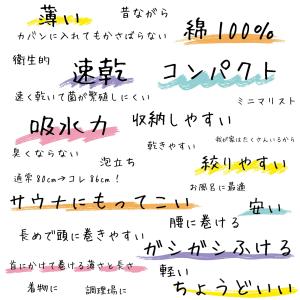 薄い
昔ながら
カバンに入れてもかさばらない
綿100%
衛生的
速乾
コンパクト
速く乾いて菌が繁殖しにくい
ミニマリスト
吸水力
収納しやすい
臭くならない
泡立ち
乾きやすい
我が家はたくさんいるから
絞りやすい
通常80cm→コレ86cm!
お風呂に最適
サウナにもってこい
安い
腰に巻ける
長めで頭に巻きやすい
ガシガシふける
首にかけて巻ける薄さと長さ
軽い
着物に
調理場に
ちょうどいい